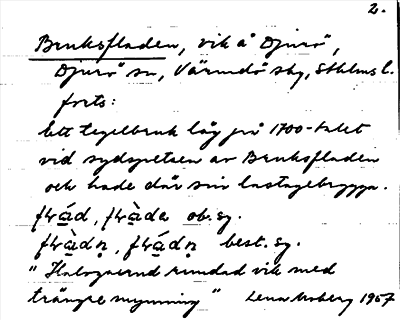 2.
Bruksfladen, vik å Djurö,
Djurö sn, Värmdö skg, Sthlms l.
forts:
Ett tegelbruk låg på 1700-talet
vid sydspetsen av Bruksfladen
och hade där sin lastagebrygga.
flạ́d, flạ̀da ob. sg.
flạ̀dṇ, flạ́dṇ best. sg.
"Halvrund vik med
trängre mynning" Lena Moberg 1967